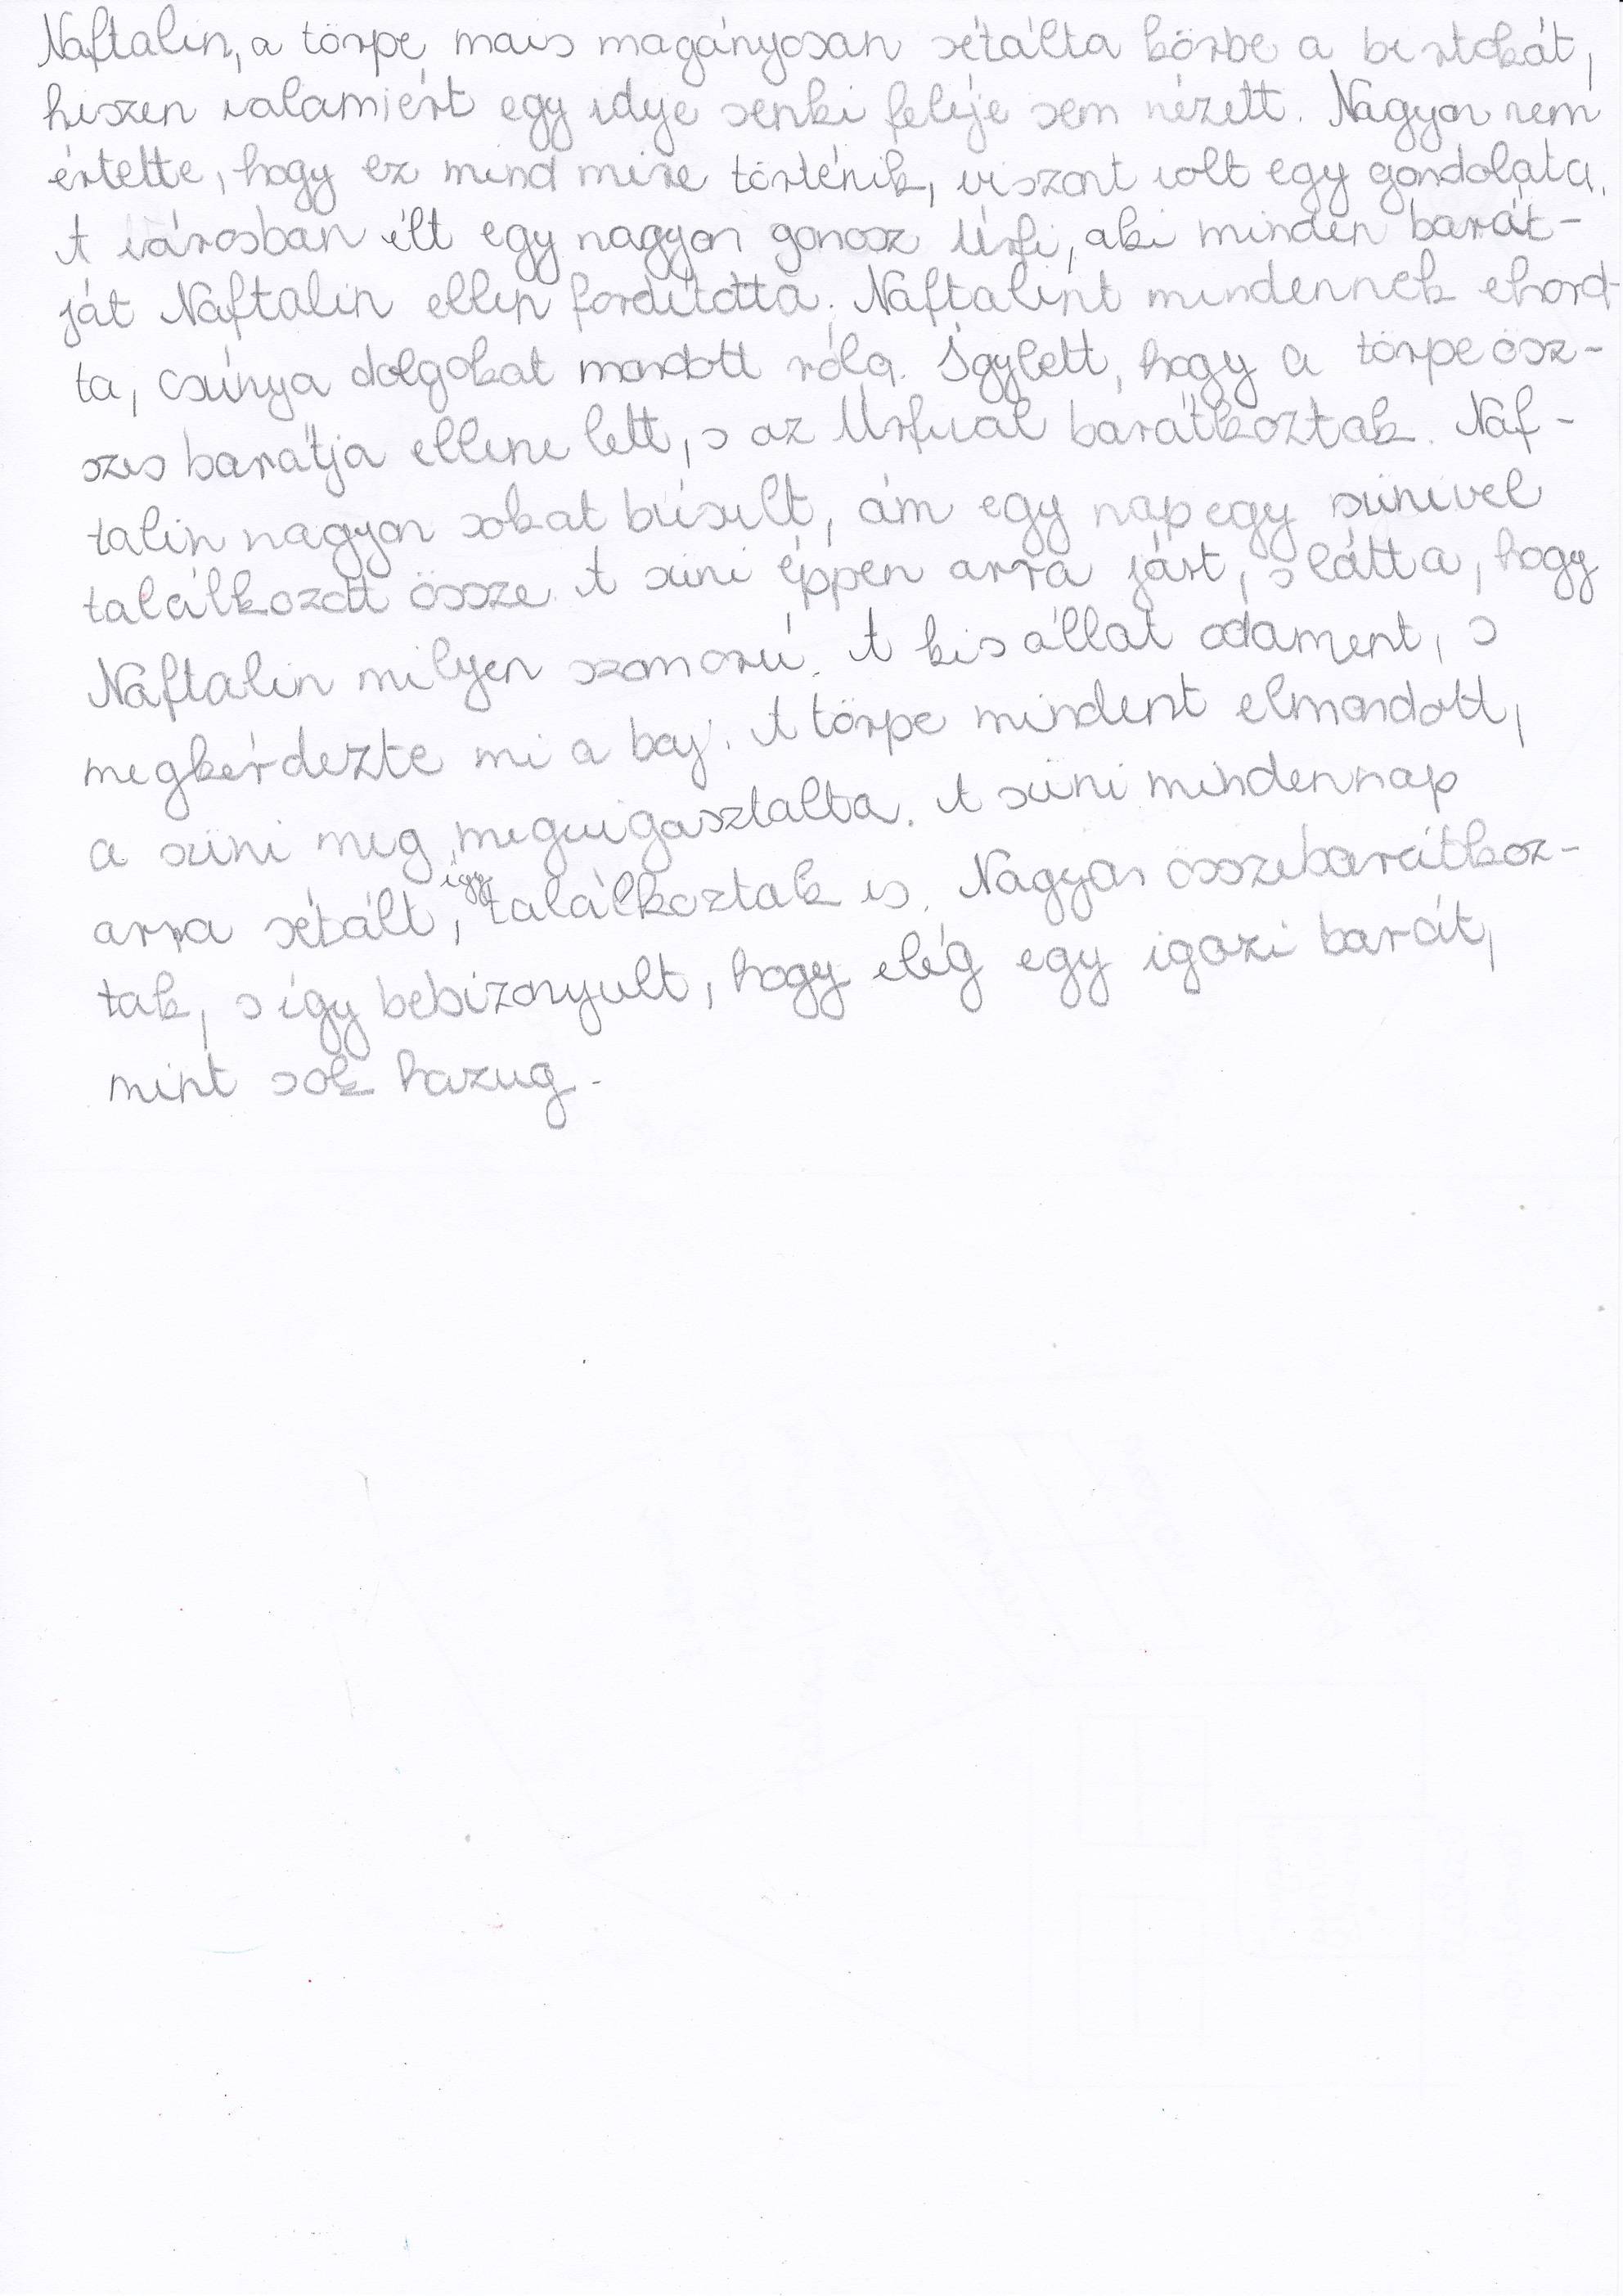 Naftalin, a törpe mais magányosan sétálta körbe a birtokát,
hiszen valamiért egy idje senki feléje sem nézett. Nagyon nem
értette, hogy ez mind mire történik, viszont volt egy gondolata.
A városban élt egy nagyon gonosz Úrfi, aki minden barát-
ját Naftalin ellen fordította. Naftalint mindennek elhord-
ta, csúnya dolgokat mondott róla. Ígylett, hogy a törpe ösz-
szes barátja ellene lett, s az Úrfival barátkoztak. Naf-
talin nagyon sokat búsult, ám egy nap egy sünivel
találkozott össze. A süni éppen arra járt, s látta, hogy
Naftalin milyen szomorú. A kis állat odament, s
megkérdezte mi a baj. A törpe mindent elmondott,
a süni meg megvigasztalta. A süni mindennap
arra sétált, így találkoztak is. Nagyon összebarátkoz-
tak, s így bebizonyult, hogy elég egy igazi barát,
mint sok hazug.